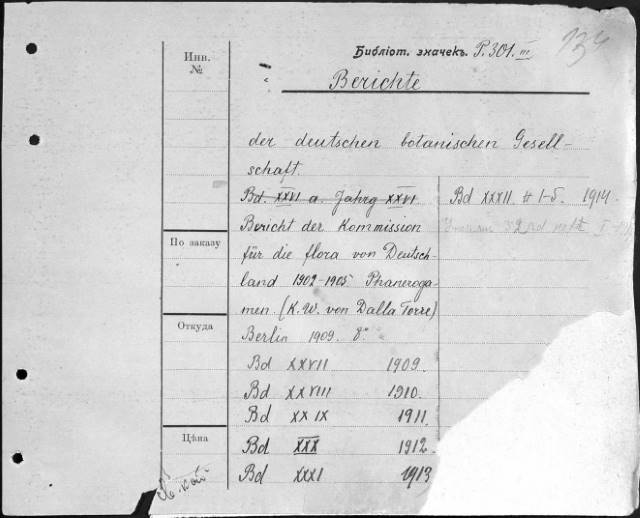 134
Библіот. значекъ. P.301.III
Инв.
№
Berichte
der deutschen botanischen Gesell-
schaft.
Bd. XXVI a. Jahrg XXVI
Bericht der Kommission
für die flora von Deutsch-
land 1902-1905 Phaneroga-
men. (K. W. von Dalla Torre)
Berlin 1909. 8°
Bd XXVII 1909.
Bd XXVIII 1910.
Bd XXIX 1911.
Bd XXX 1912.
Bd XXXI 1913
Bd XXXII H 1-5. 1914.
По заказу
Откуда
Цѣна